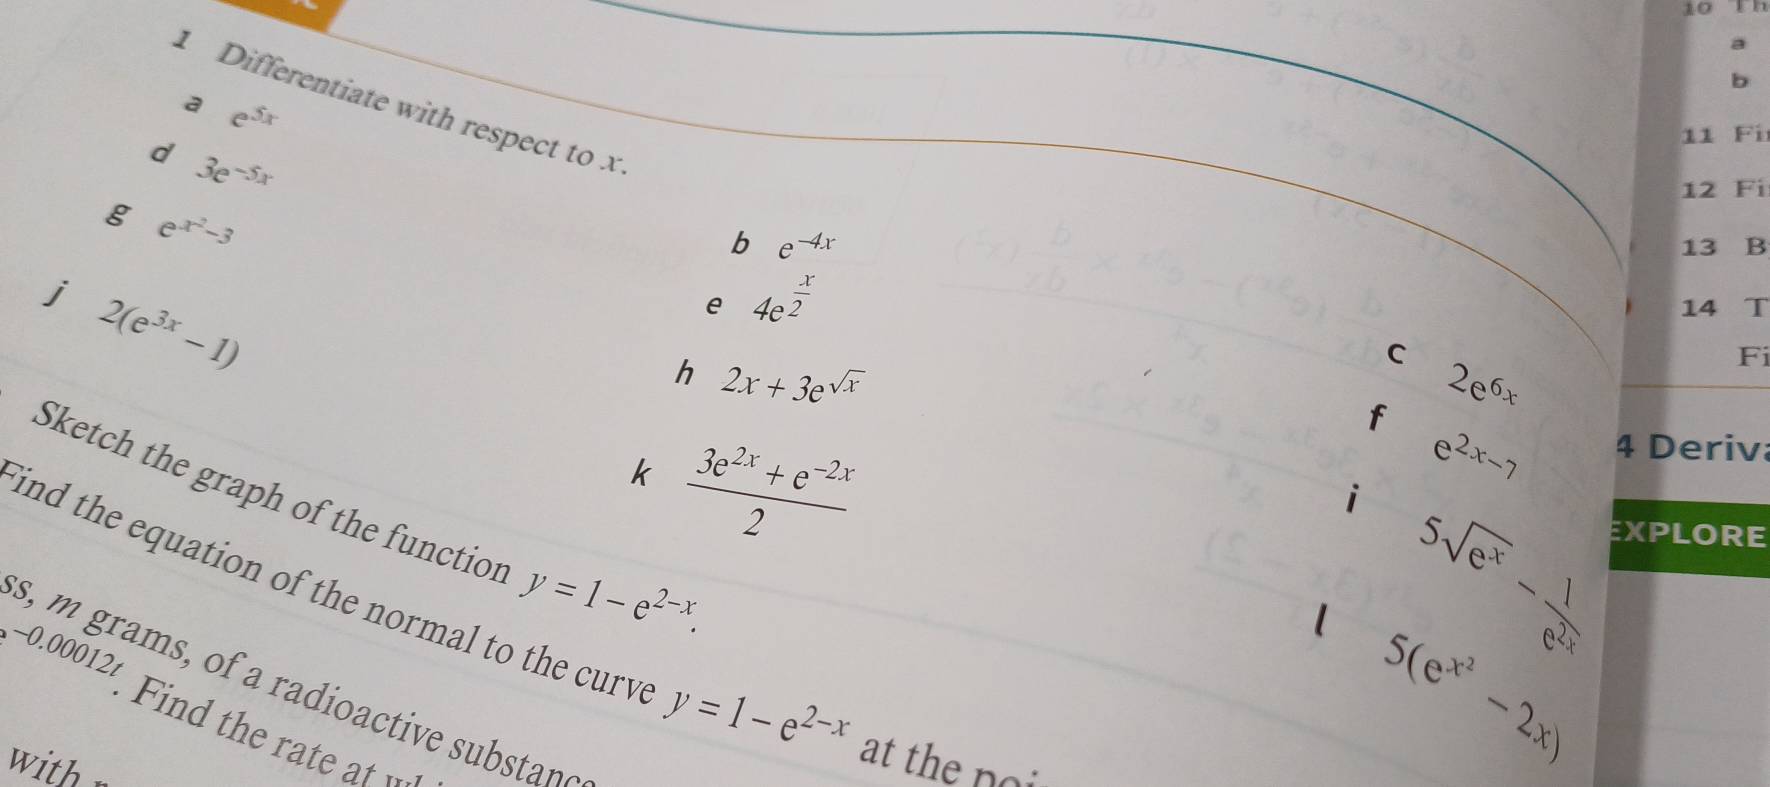 1 Differentiate with respect to x.
a e^{5x}
b e^{-4x}
c 2e^{6x}
d 3e^{-5x}
e 4e^{\frac{x}{2}}
f e^{2x-7}
g e^{x^2-3}
h 2x + 3e^{\sqrt{x}}
i 5\sqrt{e^x} - \frac{1}{e^{2x}}
j 2(e^{3x} - 1)
k \frac{3e^{2x} + e^{-2x}}{2}
l 5(e^{x^2} - 2x)
Sketch the graph of the function y = 1 - e^{2-x}.
Find the equation of the normal to the curve y = 1 - e^{2-x} at the
ss, m grams, of a radioactive substance
^{-0.00012t}. Find the rate at
with
10 Th
a
b
11 Fi
12 Fi
13 B
14 T
Fi
4 Deriva
EXPLORE